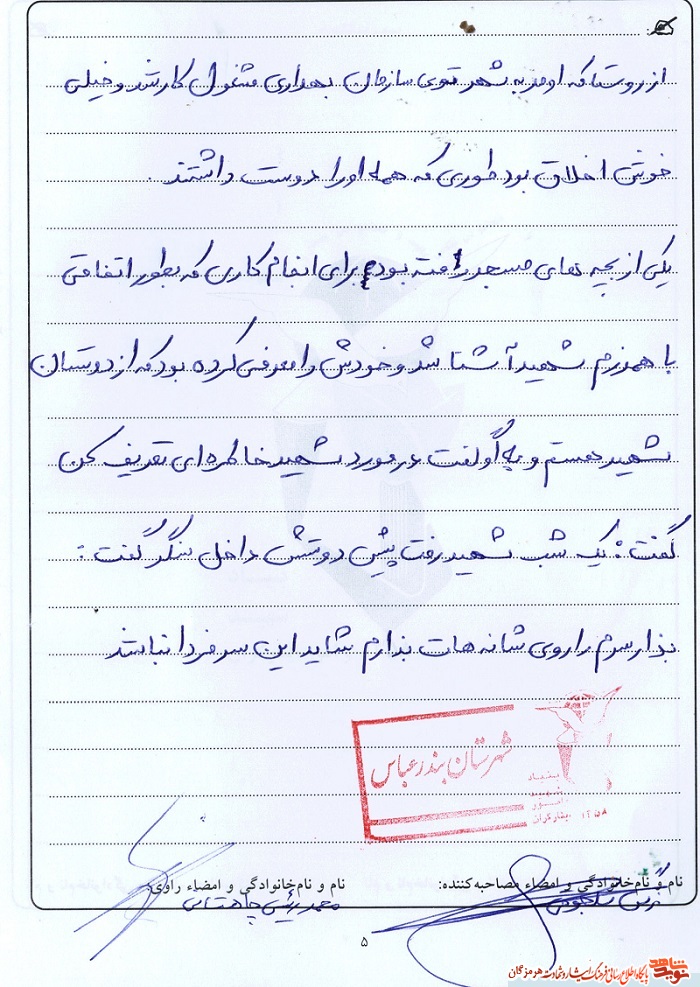 از روستا که اومد به شهر توی سازمان بهداری مشغول کار شد و خیلی
خوش اخلاق بود طوری که همه او را دوست داشتند.
یکی از بچه های مسجد رفته بود برای انجام کاری که بطور اتفاقی
با همرزم شهید آشنا شد و خودش را معرفی کرده بود که از دوستان
شهید هستم و به او گفت در مورد شهید خاطره ای تعریف کن
گفت: یک شب شهید رفت پیش دوستش داخل سنگر گفت:
بذار سرم را روی شانه هات بذارم شاید این سر فردا نباشد
شهرستان بندرعباس
بنیاد
شهید
و امور
ایثارگران
۱۳۵۸
نام و نام‌خانوادگی و امضاء مصاحبه‌کننده:
نام و نام‌خانوادگی و امضاء راوی:
محمد رئیسی
۵
نوید شاهد
پایگاه اطلاع رسانی فرهنگ ایثار و شهادت هرمزگان